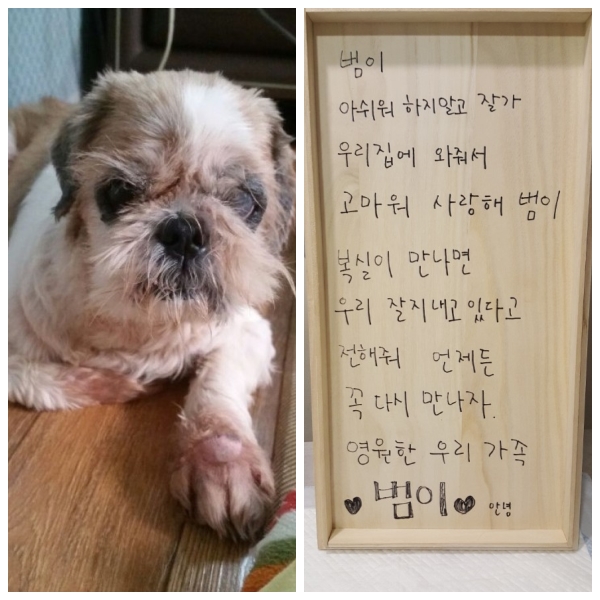 범이
아쉬워 하지말고 잘가
우리집에 와줘서
고마워 사랑해 범이
복실이 만나면
우리 잘지내고있다고
전해줘 언제든
꼭 다시 만나자.
영원한 우리 가족
♥ 범이 ♥ 안녕